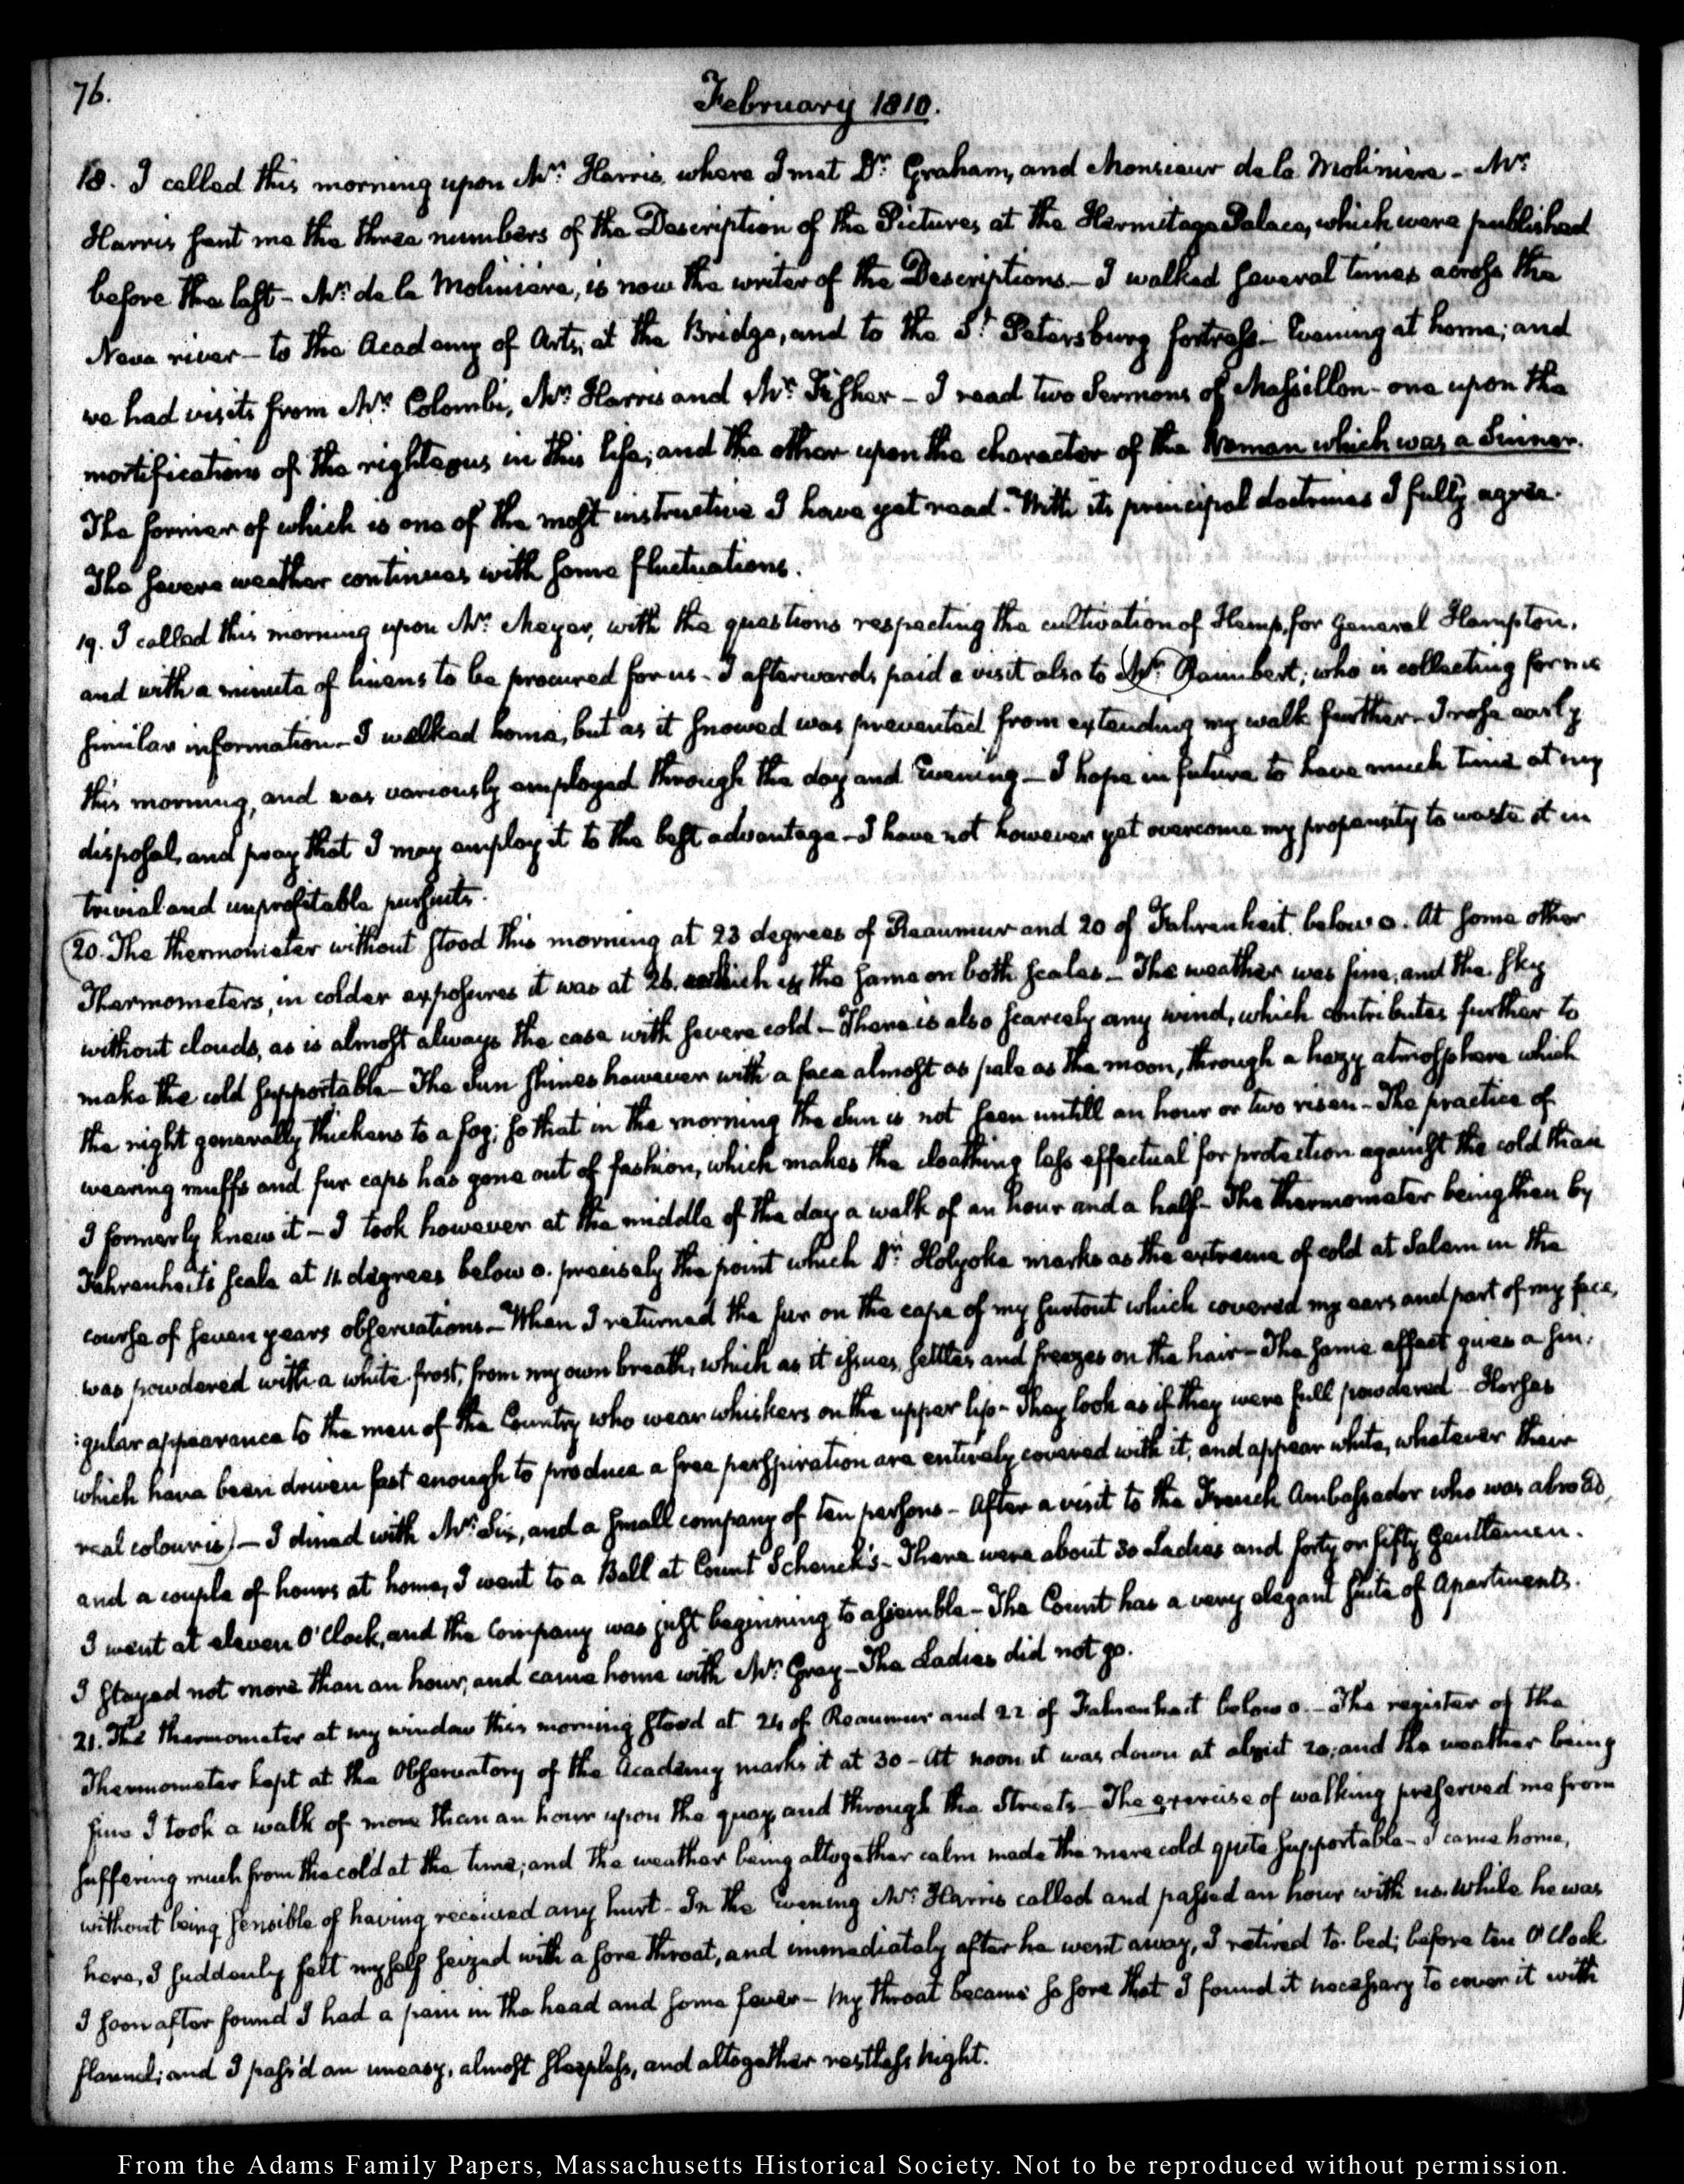 76.
February 1810.
18. I called this morning upon Mr. Harris, where I met Dr. Graham, and Monsieur de la Moliniere - Mr.
Harris sent me the three numbers of the Description of the Pictures at the Hermitage Palace, which were published
before the last - Mr. de la Moliniere, is now the writer of the Descriptions - I walked several times across the
Neva river - to the Academy of Arts, at the Bridge, and to the St. Petersburg fortress - Evening at home; and
we had visits from Mr. Colombi, Mr. Harris and Mr. Fisher - I read two Sermons of Massillon - one upon the
mortifications of the righteous in this life; and the other upon the character of the Woman which was a Sinner.
The former of which is one of the most instructive I have yet read. With its principal doctrines I fully agree.
The severe weather continues with some fluctuations.
19. I called this morning upon Mr. Meyer, with the questions respecting the cultivation of Hemp, for General Hampton,
and with a minute of linens to be procured for us - I afterwards paid a visit also to Mr. Raimbert; who is collecting for me
similar information - I walked home, but as it snowed was prevented from extending my walk further - I rose early
this morning, and was variously employed through the day and Evening - I hope in future to have much time at my
disposal, and pray that I may employ it to the best advantage - I have not however yet overcome my propensity to waste it in
trivial and unprofitable pursuits.
20. The thermometer without stood this morning at 23 degrees of Reaumur and 20 of Fahrenheit below 0. At some other
Thermometers, in colder exposures it was at 26. which is the same on both scales - The weather was fine, and the sky
without clouds, as is almost always the case with severe cold - There is also scarcely any wind, which contributes further to
make the cold supportable - The Sun shines however with a face almost as pale as the moon, through a hazy atmosphere which
the night generally thickens to a fog; so that in the morning the Sun is not seen untill an hour or two risen - The practice of
wearing muffs and fur caps has gone out of fashion, which makes the cloathing less effectual for protection against the cold than
I formerly knew it - I took however at the middle of the day a walk of an hour and a half - The thermometer being then by
Fahrenheit's scale at 11 degrees below 0. precisely the point which Dr. Holyoke marks as the extreme of cold at Salem in the
course of seven years observations - When I returned the fur on the cape of my surtout which covered my ears and part of my face,
was powdered with a white frost, from my own breath, which as it issues, settles and freezes on the hair - The same effect gives a sin:
:gular appearance to the men of the Country who wear whiskers on the upper lip - They look as if they were full powdered - Horses
which have been driven fast enough to produce a free perspiration are entirely covered with it, and appear white, whatever their
real colour is) - I dined with Mr. Six, and a small company of ten persons - After a visit to the French Ambassador who was abroad,
and a couple of hours at home, I went to a Ball at Count Schenck's - There were about 30 Ladies and forty or fifty Gentlemen.
I went at eleven O'Clock, and the Company was just beginning to assemble - The Count has a very elegant suite of Apartments.
I stayed not more than an hour, and came home with Mr. Gray - The Ladies did not go.
21. The thermometer at my window this morning stood at 24 of Reaumur and 22 of Fahrenheit below 0. - The register of the
Thermometer kept at the Observatory of the Academy marks it at 30 - At noon it was down at about 20; and the weather being
fine I took a walk of more than an hour upon the quay, and through the Streets - The exercise of walking preserved me from
suffering much from the cold at the time; and the weather being altogether calm made the mere cold quite supportable - I came home,
without being sensible of having received any hurt - In the Evening Mr. Harris called and passed an hour with us. While he was
here, I suddenly felt myself seized with a sore throat, and immediately after he went away, I retired to bed; before ten O'Clock
I soon after found I had a pain in the head and some fever - My throat became so sore that I found it necessary to cover it with
flannel; and I pass'd an uneasy, almost sleepless, and altogether restless night.
From the Adams Family Papers, Massachusetts Historical Society. Not to be reproduced without permission.